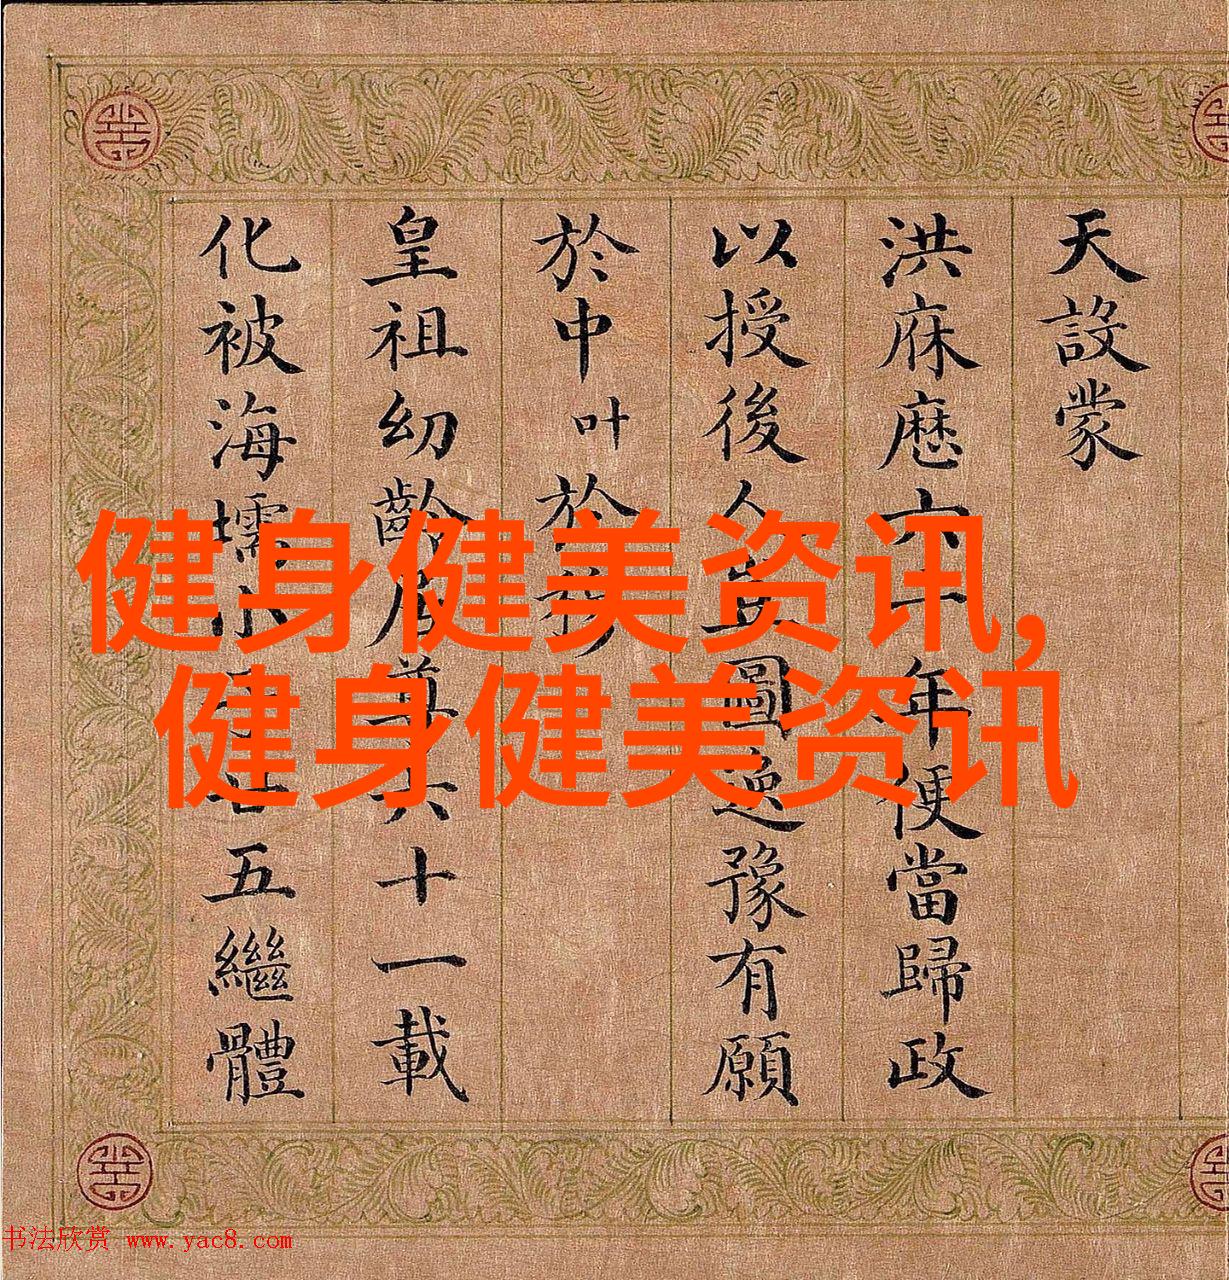 天設蒙
洪庥歷六十年便當歸政
以授後人圖逸豫有願
於中叶於
皇祖幼齡居尊六十一載
化被海壖小子廿五繼體
健身健美资讯,
健身健美资讯
书法欣赏 www.yac8.com